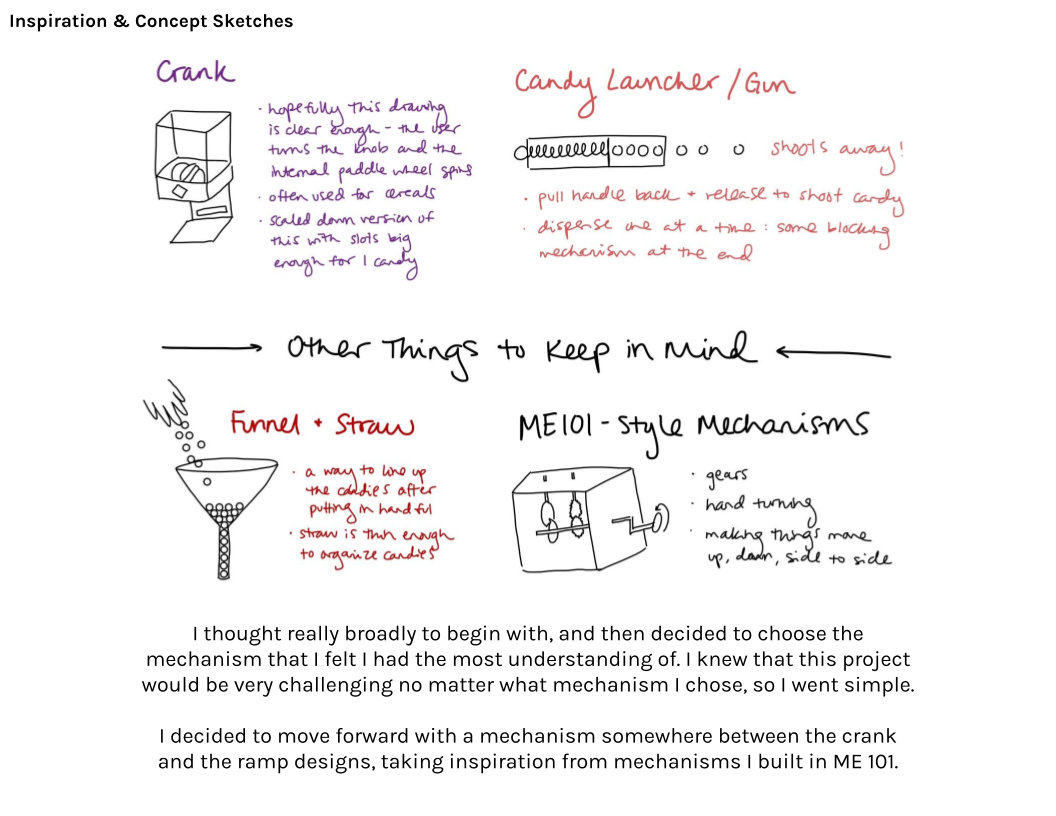 Inspiration & Concept Sketches
Crank
· hopefully this drawing
is clear enough - the user
turns the knob and the
internal paddle wheel spins
· often used for cereals
· scaled down version of
this with slots big
enough for 1 candy
Candy Launcher / Gun
shoots away!
· pull handle back + release to shoot candy
· dispense one at a time : some blocking
mechanism at the end
Other Things to Keep in Mind
Funnel + Straw
· a way to line up
the candies after
putting in handful
· straw is thin enough
to organize candies
ME101 - Style Mechanisms
· gears
· hand turning
· making things move
up, down, side to side
I thought really broadly to begin with, and then decided to choose the
mechanism that I felt I had the most understanding of. I knew that this project
would be very challenging no matter what mechanism I chose, so I went simple.
I decided to move forward with a mechanism somewhere between the crank
and the ramp designs, taking inspiration from mechanisms I built in ME 101.